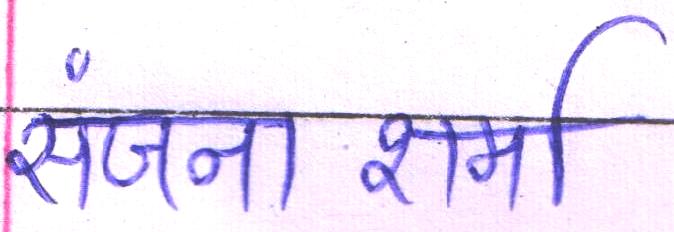 संजना शर्मा